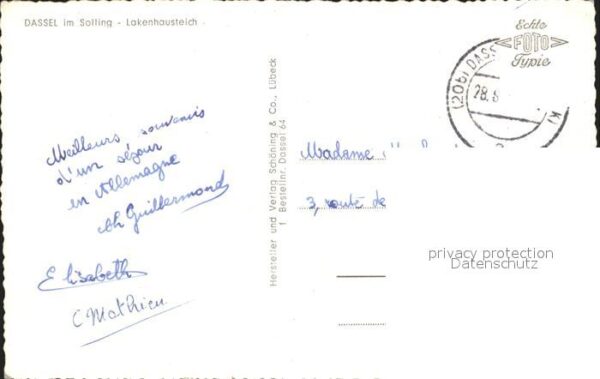 DASSEL im Solling - Lakenhausteich
Echte
FOTO
Typie
(20b) DASS
28.6
Meilleurs souvenirs
d'un séjour
en Allemagne
Guillermond
Elisabeth
C Mathieu
Hersteller und Verlag Schöning & Co., Lübeck
1 Bestellnr. Dassel 64
Madame
3, route de
privacy protection
Datenschutz